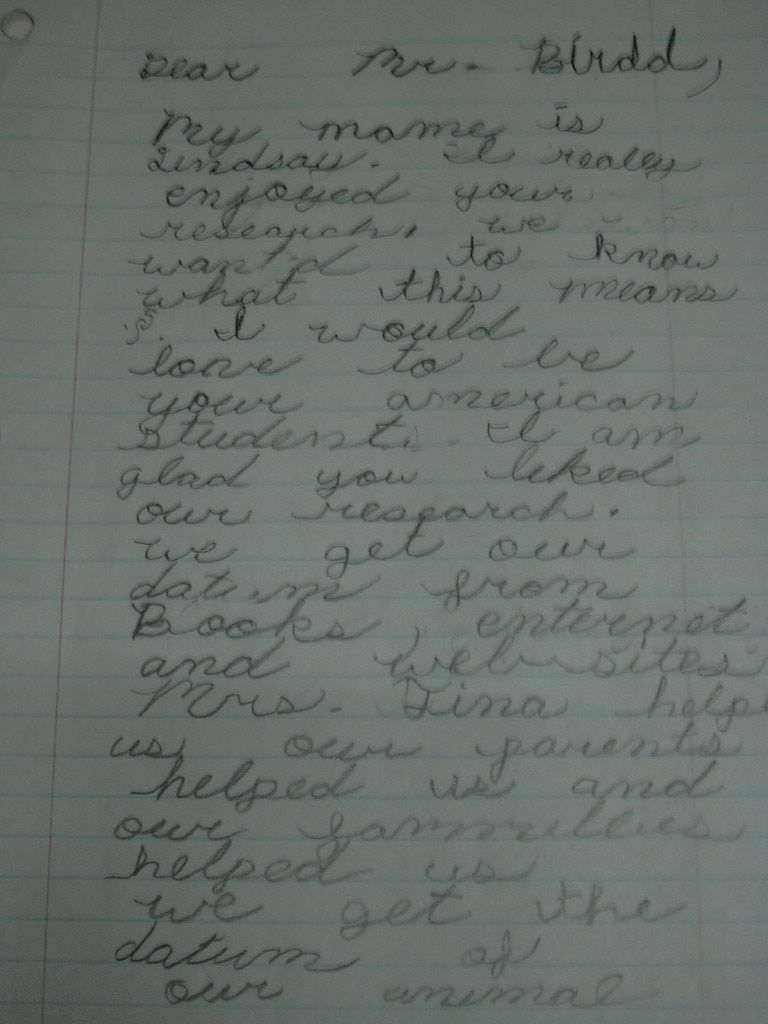 Dear Mr. Birdd,
My mame is
Lindsay. I realey
enjoyed your
research. we
want'd to know
what this means
§. I would
love to be
your american
student. I am
glad you liked
our research.
we get our
datum from
Books, enternet
and web sites
Mrs. Tina help
us our parents
helped us and
our fammillies
helped us
we get the
datum of
our animal